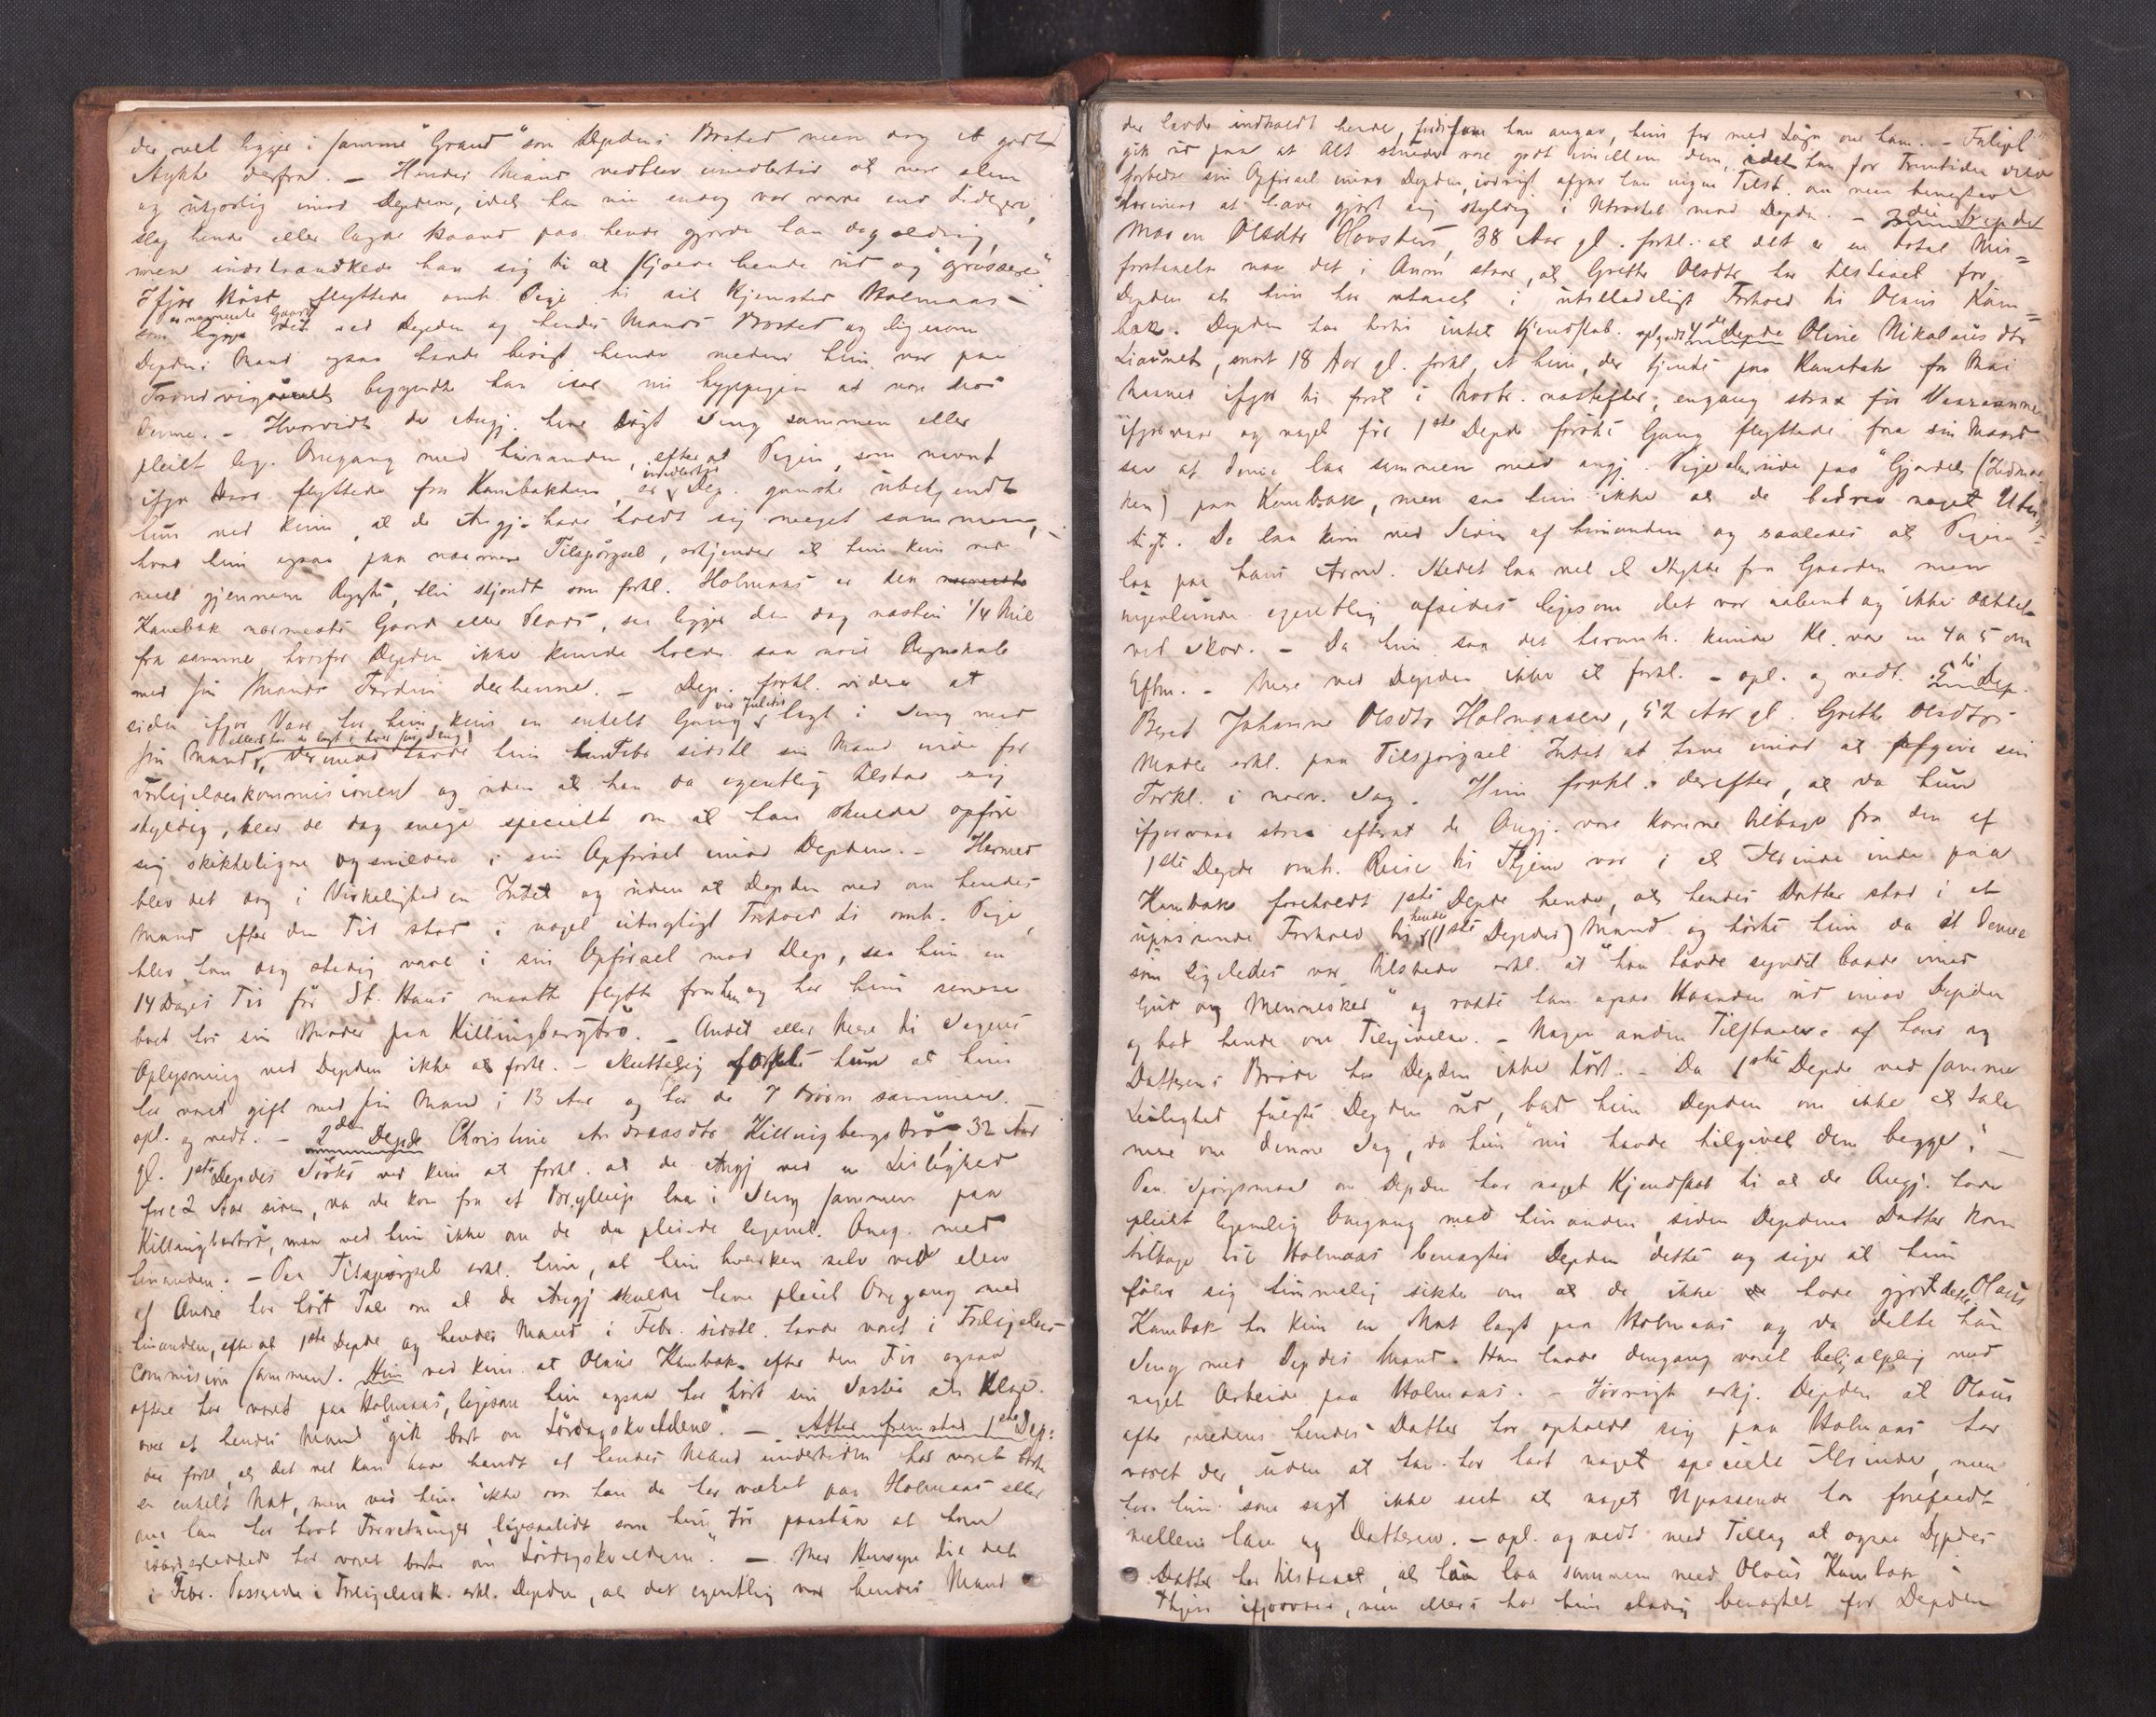 der vel ligger i samme "Grand" som Depdens Bosted men dog et godt
Stykke derfra. – Hendes Mand vedblev imidlertid at være slem
og uskjørlig imod Depden, idet han nu endog var værre end tidligere,
slog hende eller lagde Haand paa hende gjorde han dog aldrig,
men indskrænkede han sig til at skjære hende ud og "grossere"
Ifjor Høst flyttede omh. Pige til sit Hjemsted Holmaas –
som ligger er nærmeste Gaard ved Depden og hendes Mands Bosted og ligesom
Depdens Mand ogsaa havde besøgt hende medens hun var paa
Trøndvig begyndte han især nu hyppigen at være hos
Denne. – Hvorvidt de Angj. have ligt i Seng sammen eller
pleiet leg. Omgang med hinanden, efterat Pigen, som nævnt
ifjor Høst flyttede fra Kambakken, er imidlertid Dep. ganske ubekjendt
hun ved kun, at de Angj. have holdt sig meget sammen,
hvad hun ogsaa paa nærmere Tilspørgsel, erkjender at hun kun ved
mest gjennem Rygte, thi skjøndt som forkl. Holmaas er den nærmeste
Kambak nærmeste Gaard eller Plads, saa ligger den dog næsten 1/4 Mil
fra samme, hvorfor Depden ikke kunde holde saa nøie Regnskab
med sin Mands Færden derhenne. – Dep. forkl. videre at
siden ifjor Vaar har hun kun en enkelt Gang ved Juletid lagt i Seng med
sin Mand, ellers har de lagt i hver sin Seng, Dermed havde hun i Febr. sidstl. sin Mand inde for
Forligelseskommissionen og uden at han da egentlig tilstod sig
skyldig, blev de dog enige specielt om at han skulde opføre
sig skikkeligere og mildere i sin Opførsel imod Depden. – Hermed
blev det dog i Virkeligheden Intet og uden at Depden ved om hendes
Mand efter den Tid stod i noget utugtigt Forhold til omh. Pige,
blev han dog stadig værre i sin Opførsel mod Dep, saa hun en
14 Dages Tid før St. Hans maatte flytte fra ham og har hun senere
boet hos sin Moder paa Killingbergtrø. – Andet eller Mere til Sagens
Oplysning ved Depden ikke at forkl. – Sluttelig forkl. hun at hun
har været gift med sin Mand i 13 Aar og har de 7 Børn sammen. –
opl. og vedt. – 2den Depde Christine Andreasdtr Killingbergtrø, 32 Aar
gl. 1ste Depdes Søster ved kun at forkl. at de Angj ved en Leilighed
for c 2 Aar siden, da de kom fra et Bryllup laa i Seng sammen paa
Killingbergtrø, men ved hun ikke om de da pleiede legeml. Omg. med
hinanden. – Paa Tilspørgsel erkl. hun, at hun hverken selv ved eller
af Andre har hørt Tale om at de Angj skulde have pleiet Omgang med
hinanden, efter at 1ste Depde og hendes Mand i Febr. sidstl. havde været i Forligelses-
Commission sammen. Hun ved kun at Olaus Kambak efter den Tid ogsaa
oftere har været paa Holmaas, ligesom hun ogsaa har hørt sin Søster klage
over at hendes Mand "gik bort om Lørdagskveldene". – Atter fremstod 1ste Dep:
der forkl. at det vel kan have hendt at hendes Mand undertiden har været borte
en enkelt Nat, men ved hun ikke om han da har været paa Holmaas eller
om han har havt Forretninger, ligesaalidt som hun tør paastaa at han
isærdeleshed har været borte om "Lørdagskveldene". – Med Hensyn til det
i Febr. Passerede i Forligelsesk. erkl. Depden, at det egentlig var hendes Mand
der havde indkaldt hende, fordi som han angav, hun for med Løgn om ham. – Forliget
gik ud paa at Alt skulde være godt imellem dem, idet han for Fremtiden vilde
forbedre sin Opførsel imod Depden, iøvrigt afgav han ingen Tilst. om men benægtede
derimod at have gjort sig skyldig i Utroskab mod Depden. – 3die Depde
Maren Olsdtr Hovstien, 38 Aar gl. forkl. at det er en total Mis=
forstaaelse naar det i Anm staar, at Grethe Olsdtr har tilstaaet for
Depden at hun har staaet i utilladeligt Forhold til Olaus Kam=
bak. Depden har herom intet Kjendskab. opl. vedt. 4de Depde Oline Nikolausdtr
Liaunet, snart 18 Aar gl. forkl. at hun, der tjente paa Kambak fra Mai
Maaned ifjor til først i Novbr. næstefter, engang strax før Vaaraannen
ifjorvaar og noget før 1ste Depde første Gang flyttede fra sin Mand
saa at denne laa sammen med angj. Pige paa "Gjærdet (Hedmar
ken) paa Kambak, men saa hun ikke at de bedrev noget Utug=
tigt. De laa kun ved Siden af hinanden og saaledes at Pigen
laa paa hans Arm. Stedet laa vel et Stykke fra Gaarden men
ingenlunde egentlig afsides ligesom det var aabent og ikke dækket
ved Skov. – Da hun saa det heromh. kunde Kl. være en 4 a 5 om
Eftm. – Mere ved Depden ikke at forkl. – opl. og vedt. 5te Dep.
Beret Johanne Olsdtr Holmaasen, 52 Aar gl. Grethe Olsdtrs
Moder erkl. paa Tilspørgsel Intet at have imod at afgive sin
Forkl. i nærv. Sag. Hun forkl. derefter, at da hun
ifjorvaar strax efterat de Angj. vare komne tilbage fra den af
1ste Depde omh. Reise til Thjem var i et Ærinde inde paa
Kambak foreholdt 1ste Depde hende, at hendes Datter stod i et
upassende Forhold til hendes (1ste Depdes) Mand og hørte hun da at Denne
som ligeledes var tilstede erkl. at "han havde syndet baade imod
Gud og Mennesker" og rakte han ogsaa Haanden ud imod Depden
og bad hende om Tilgivelse. – Nogen anden Tilstaaelse af hans og
Datterens Brøde har Depden ikke hørt. – Da 1ste Depde ved samme
Leilighed fulgte Depden ud, bad hun Depden om ikke at tale
mere om denne Sag, da hun "nu havde tilgivet dem begge". –
Paa Spørgsmaal om Depden har noget Kjendskab til at de Angj. have
pleiet legemlig Omgang med hinanden, siden Depdens Datter kom
tilbage til Holmaas benægter Depden dette og siger at hun
føler sig temmelig sikker om at de ikke have gjort dette. Olaus
Kambak har kun en Nat lagt paa Holmaas og da delte han
Seng med Depdes Mand. Han havde dengang været behjælpelig med
noget Arbeide paa Holmaas. – Iøvrigt erkj. Depden at Olaus
ofte medens hendes Datter har opholdt sig paa Holmaas har
været der uden at han har havt noget specielt Ærinde, men
har hun som sagt ikke seet at noget Upassende har forefaldt
mellem ham og Datteren. – opl. og vedt. med Tillæg at ogsaa Depdes
Datter har tilstaaet, at hun laa sammen med Olaus Kambak i
Thjem ifjorvaar, men ellers har hun stadig benægtet for Depden